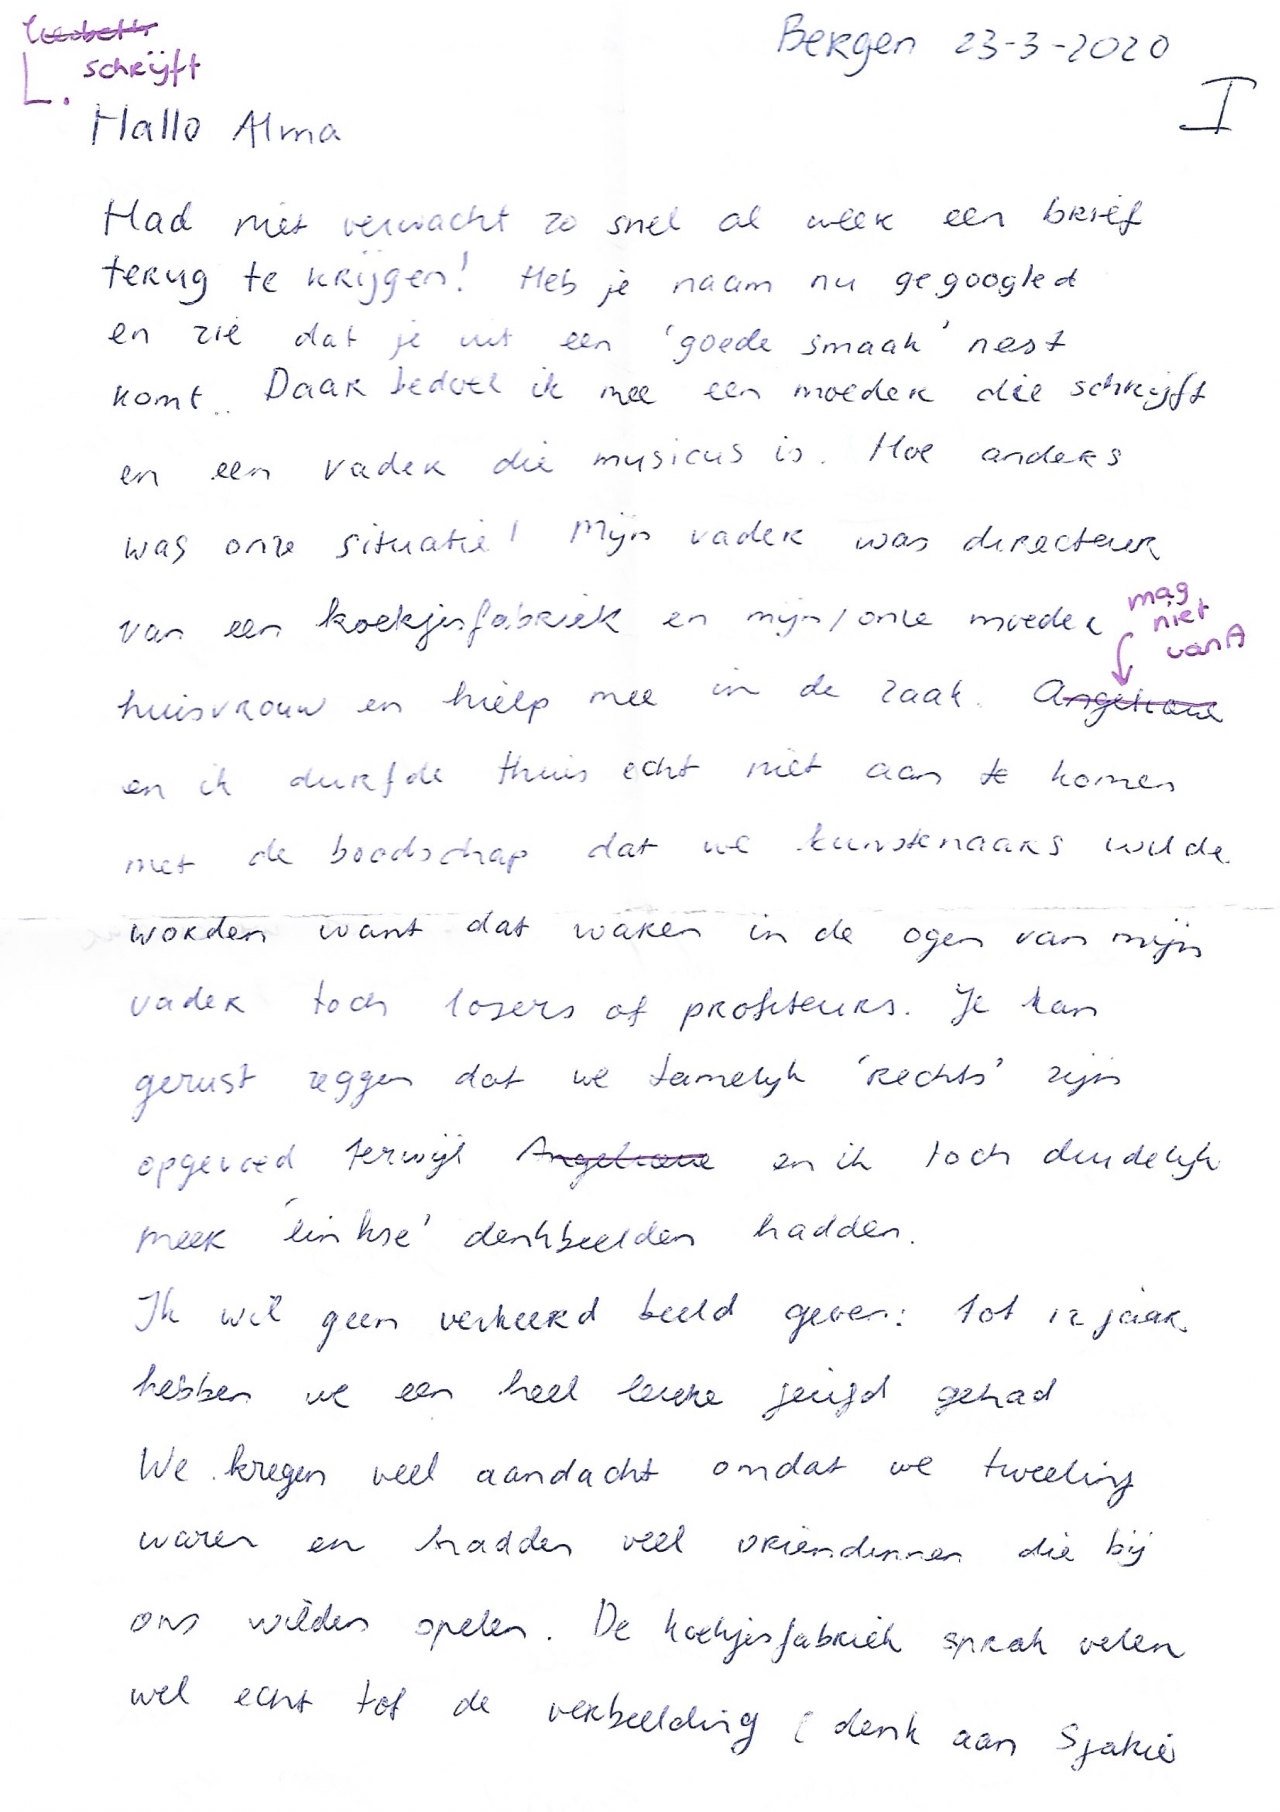 Liesbeth
schrijft
L.
Bergen 23-3-2020
I
Hallo Alma
Had niet verwacht zo snel al week een brief
terug te krijgen! Heb je naam nu gegoogled
en zie dat je uit een 'goede smaak' nest
komt.. Daar bedoel ik mee een moeder die schrijft
en een vader die musicus is. Hoe anders
was onze situatie! Mijn vader was directeur
van een koekjesfabriek en mijn/onze moeder
mag
niet
van A
huisvrouw en hielp mee in de zaak. Angelique
en ik durfde thuis echt niet aan te komen
met de boodschap dat we kunstenaars wilde
worden want dat waren in de ogen van mijn
vader toch losers of profiteurs. Je kan
gerust zeggen dat we tamelijk 'rechts' zijn
opgevoed terwijl Angelique en ik toch duidelijk
meer 'linkse' denkbeelden hadden.
Ik wil geen verkeerd beeld geven: tot 12 jaar
hebben we een heel leuke jeugd gehad
We kregen veel aandacht omdat we tweeling
waren en hadden veel vriendinnen die bij
ons wilden spelen. De koekjesfabriek sprak velen
wel echt tot de verbeelding (denk aan Sjakie